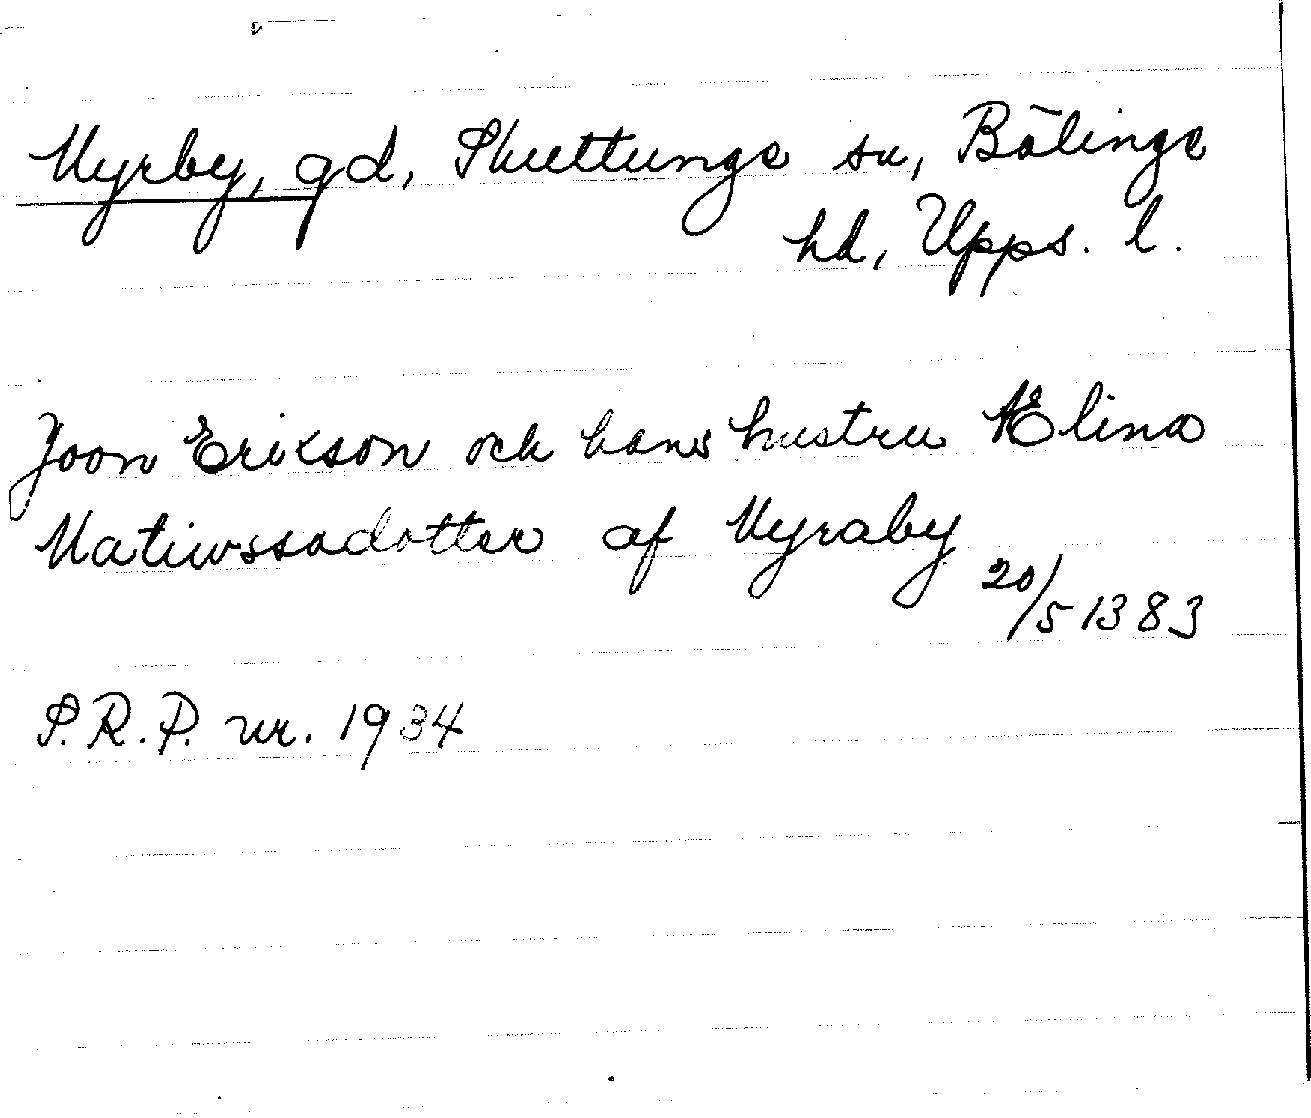 Myrby, gd, Skuttunge sn, Bälinge
hd, Upps. l.
Joon Erikson och hans hustru Ælina
Matiwssadotter af Myraby
20/5 1383
S.R.P. nr. 1934